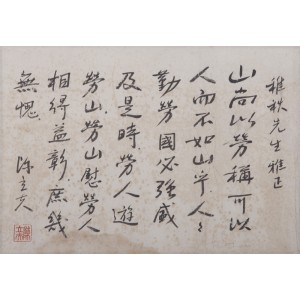 稚秋先生雅正
山尚以勞稱可以
人而不如山乎人〻
勤勞國必強盛
及是時勞人遊
勞山勞山慰勞人
相得益彰庶幾
無愧
陳立夫